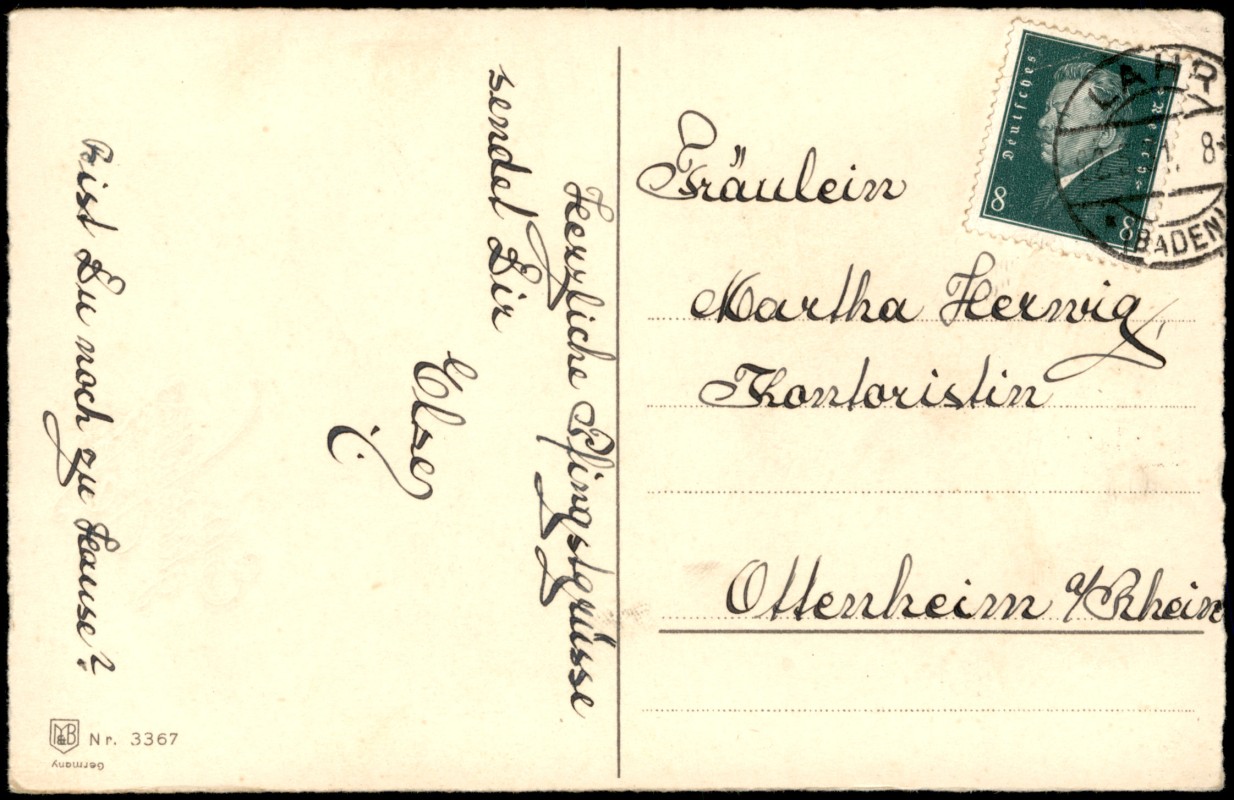 Herrliche Pfingstgrüsse
sendet Dir
Else
Bist Du noch zu Hause?
M&B
Nr. 3367
Germany
Deutsches Reich
8 8
LAHR
8
(BADEN)
Fräulein
Martha Herwig,
Kontoristin
Ottenheim a/Rhein